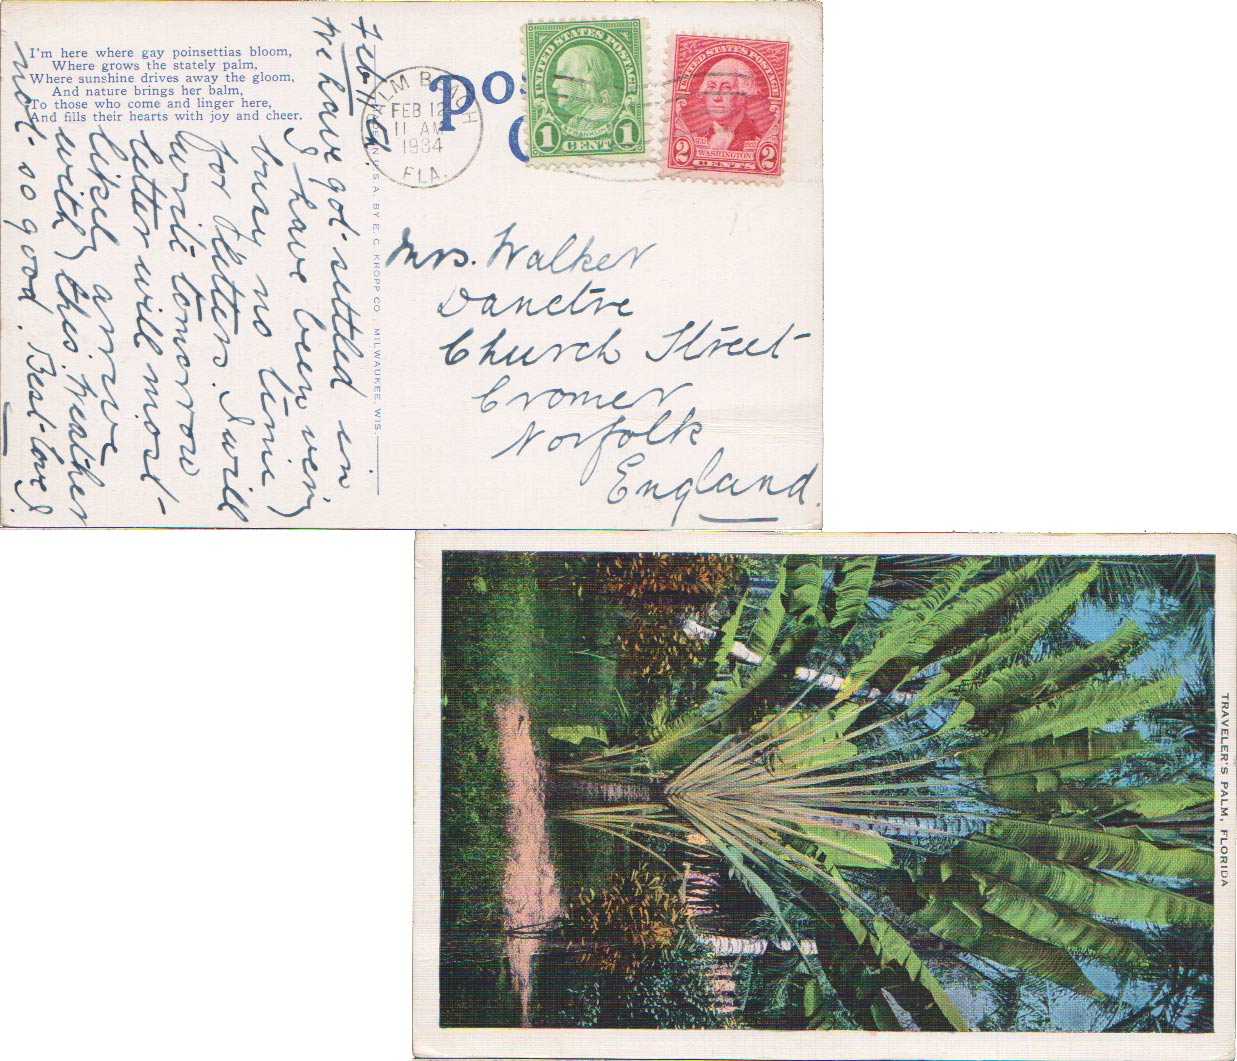 I'm here where gay poinsettias bloom,
Where grows the stately palm,
Where sunshine drives away the gloom,
And nature brings her balm,
To those who come and linger here,
And fills their hearts with joy and cheer.
Feb 11th
We have got settled in
I have been very
busy no time
for letters. I will
write tomorrow
letter will most
likely arrive
with this. Weather
not so good. Best love
PALM BEACH
FEB 12
11 AM
1934
FLA.
UNITED STATES POSTAGE
FRANKLIN
1 CENT 1
UNITED STATES POSTAGE
WASHINGTON
2 CENTS 2
U.S.A. BY E. C. KROPP CO., MILWAUKEE, WIS.
Mrs. Walker
Danetre
Church Street
Cromer
Norfolk
England.
TRAVELER'S PALM, FLORIDA